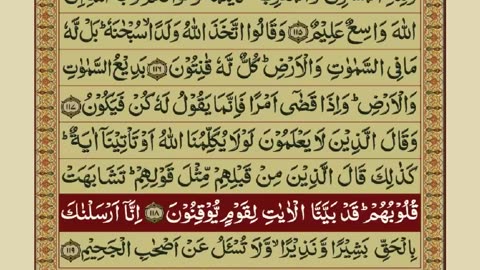 اللهَ وَاسِعٌ عَلِيْمٌ ﴿۱۱۵﴾ وَقَالُوا اتَّخَذَ اللهُ وَلَدًا ۙ سُبْحٰنَهٗ ؕ بَلْ لَّهٗ
مَا فِی السَّمٰوٰتِ وَالْاَرْضِ ؕ كُلٌّ لَّهٗ قٰنِتُوْنَ ﴿۱۱۶﴾ بَدِيْعُ السَّمٰوٰتِ
وَالْاَرْضِ ؕ وَاِذَا قَضٰۤی اَمْرًا فَاِنَّمَا يَقُوْلُ لَهٗ كُنْ فَيَكُوْنُ ﴿۱۱۷﴾
وَقَالَ الَّذِيْنَ لَا يَعْلَمُوْنَ لَوْلَا يُكَلِّمُنَا اللهُ اَوْ تَاْتِيْنَاۤ اٰيَةٌ ؕ
كَذٰلِكَ قَالَ الَّذِيْنَ مِنْ قَبْلِهِمْ مِّثْلَ قَوْلِهِمْ ؕ تَشَابَهَتْ
قُلُوْبُهُمْ ؕ قَدْ بَيَّنَّا الْاٰيٰتِ لِقَوْمٍ يُّوْقِنُوْنَ ﴿۱۱۸﴾ اِنَّاۤ اَرْسَلْنٰكَ
بِالْحَقِّ بَشِيْرًا وَّنَذِيْرًا ۙ وَّلَا تُسْـَٔلُ عَنْ اَصْحٰبِ الْجَحِيْمِ ﴿۱۱۹﴾